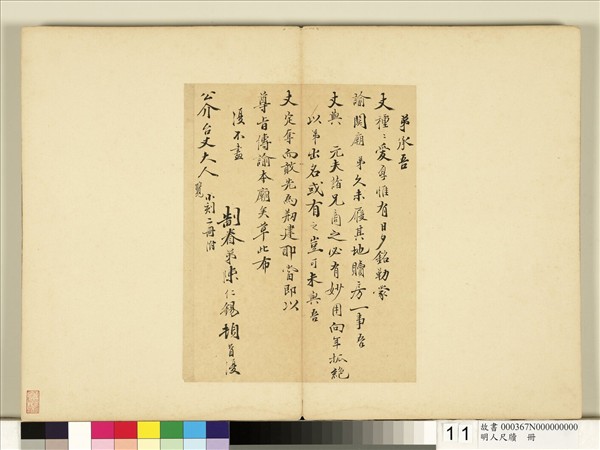 弟承吾
丈種種愛尊惟有日夕銘勒蒙
諭關廟 弟久未履其地贖房一事吾
丈與 元夫諸兄商之必有妙用向年孤絕
以弟出名或有之豈可未與吾
丈定奪而敢先為剏建耶當即以
尊旨傳諭本廟矣草此布
復不盡
公介台丈大人 覽 小刻二冊附
制眷弟陳仁錫 頓首復
11
故書 000367N000000000
明人尺牘 冊